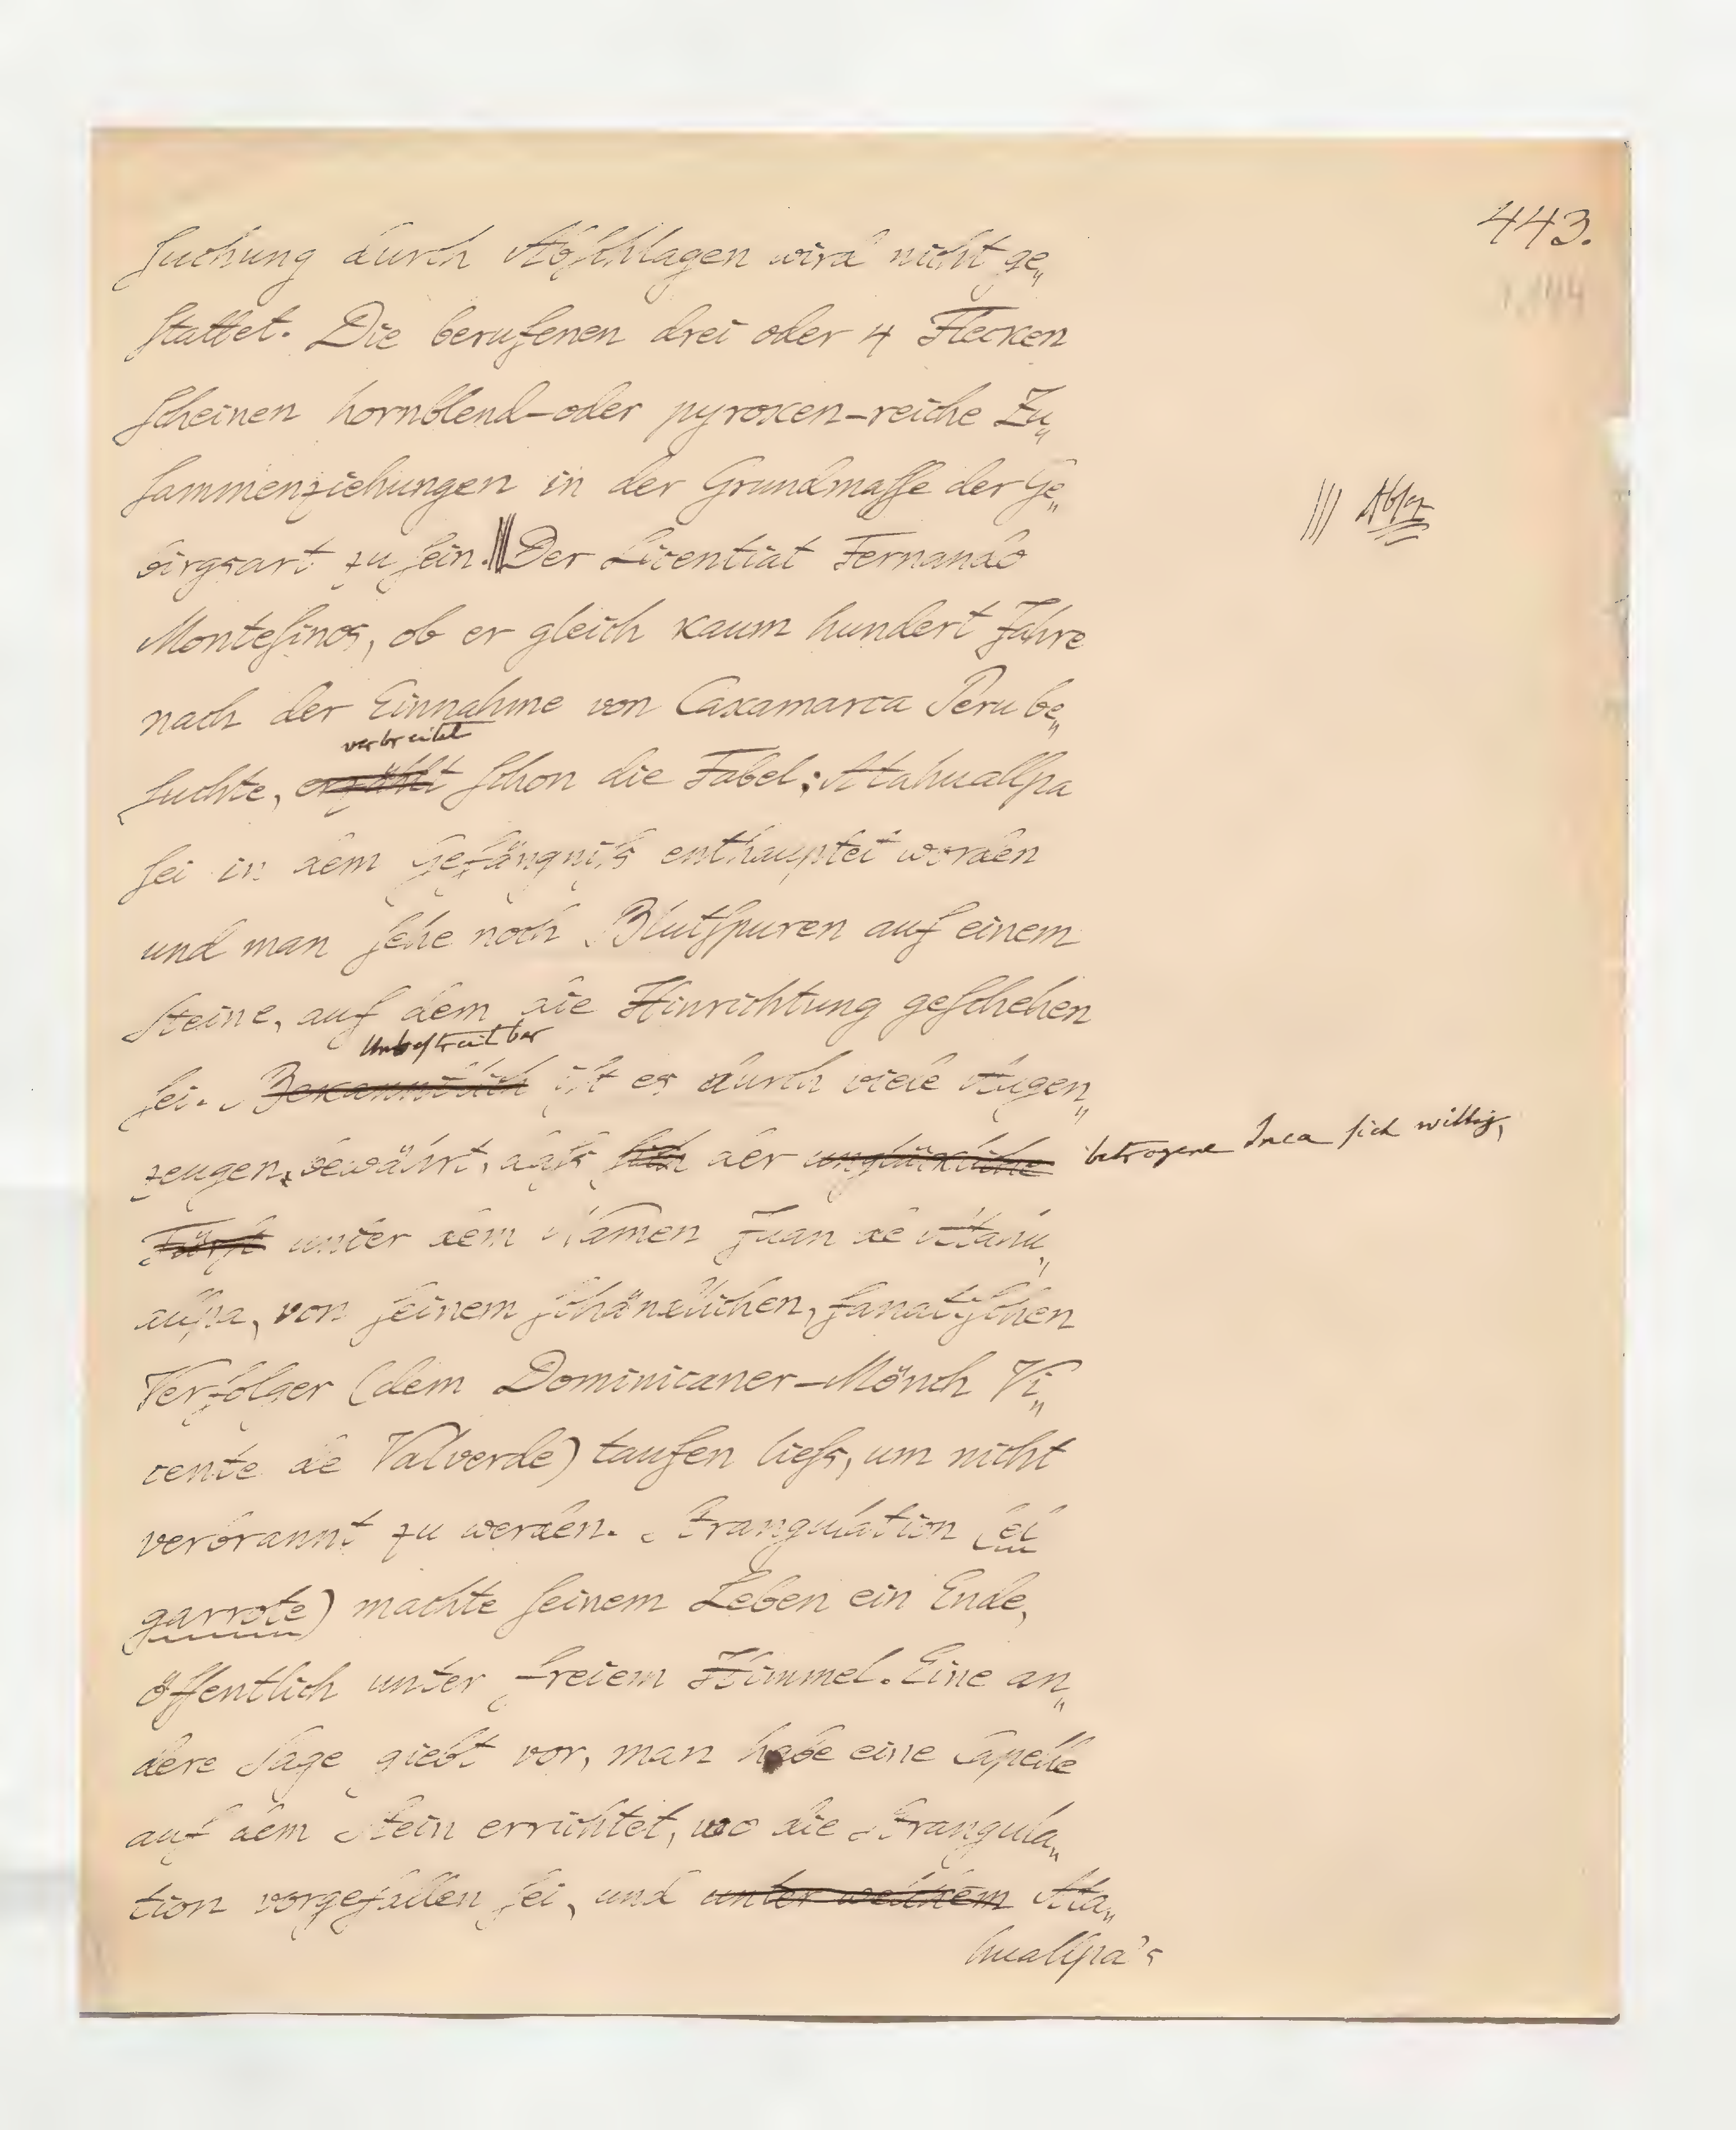 443.
suchung durch Abschlagen wird nicht ge„
stattet. Die berufenen drei oder 4 Flecken
scheinen hornblend-oder pyroxen-reiche Zu„
sammenziehungen in der Grundmasse der Ge„
birgsart zu sein.||| Der Licentiat Fernando
||| Absz
Montesinos, ob er gleich kaum hundert Jahre
nach der Einnahme von Caxamarca Peru be„
verbreitet
suchte, erzählt schon die Fabel: Atahuallpa
sei in dem Gefängniß enthauptet worden
und man sehe noch Blutspuren auf einem
Steine, auf dem die Hinrichtung geschehen
Unbestreitbar
sei. Bekanntlich ist es durch viele Augen„
zeugen, bewährt, daß sich der unglückliche betrogene Inca sich willig,
Fürst unter dem Namen Juan de Atahu„
allpa, von seinem schändlichen, fanatischen
Verfolger (dem Dominicaner-Mönch Vi„
cente de Valverde) taufen ließ, um nicht
verbrannt zu werden. Strangulation (el
garrote) machte seinem Leben ein Ende,
öffentlich unter freiem Himmel. Eine an„
dere Sage giebt vor, man habe eine Capelle
auf dem Stein errichtet, wo die Strangula„
tion vorgefallen sei, und unter welchem Ata„
huallpa's